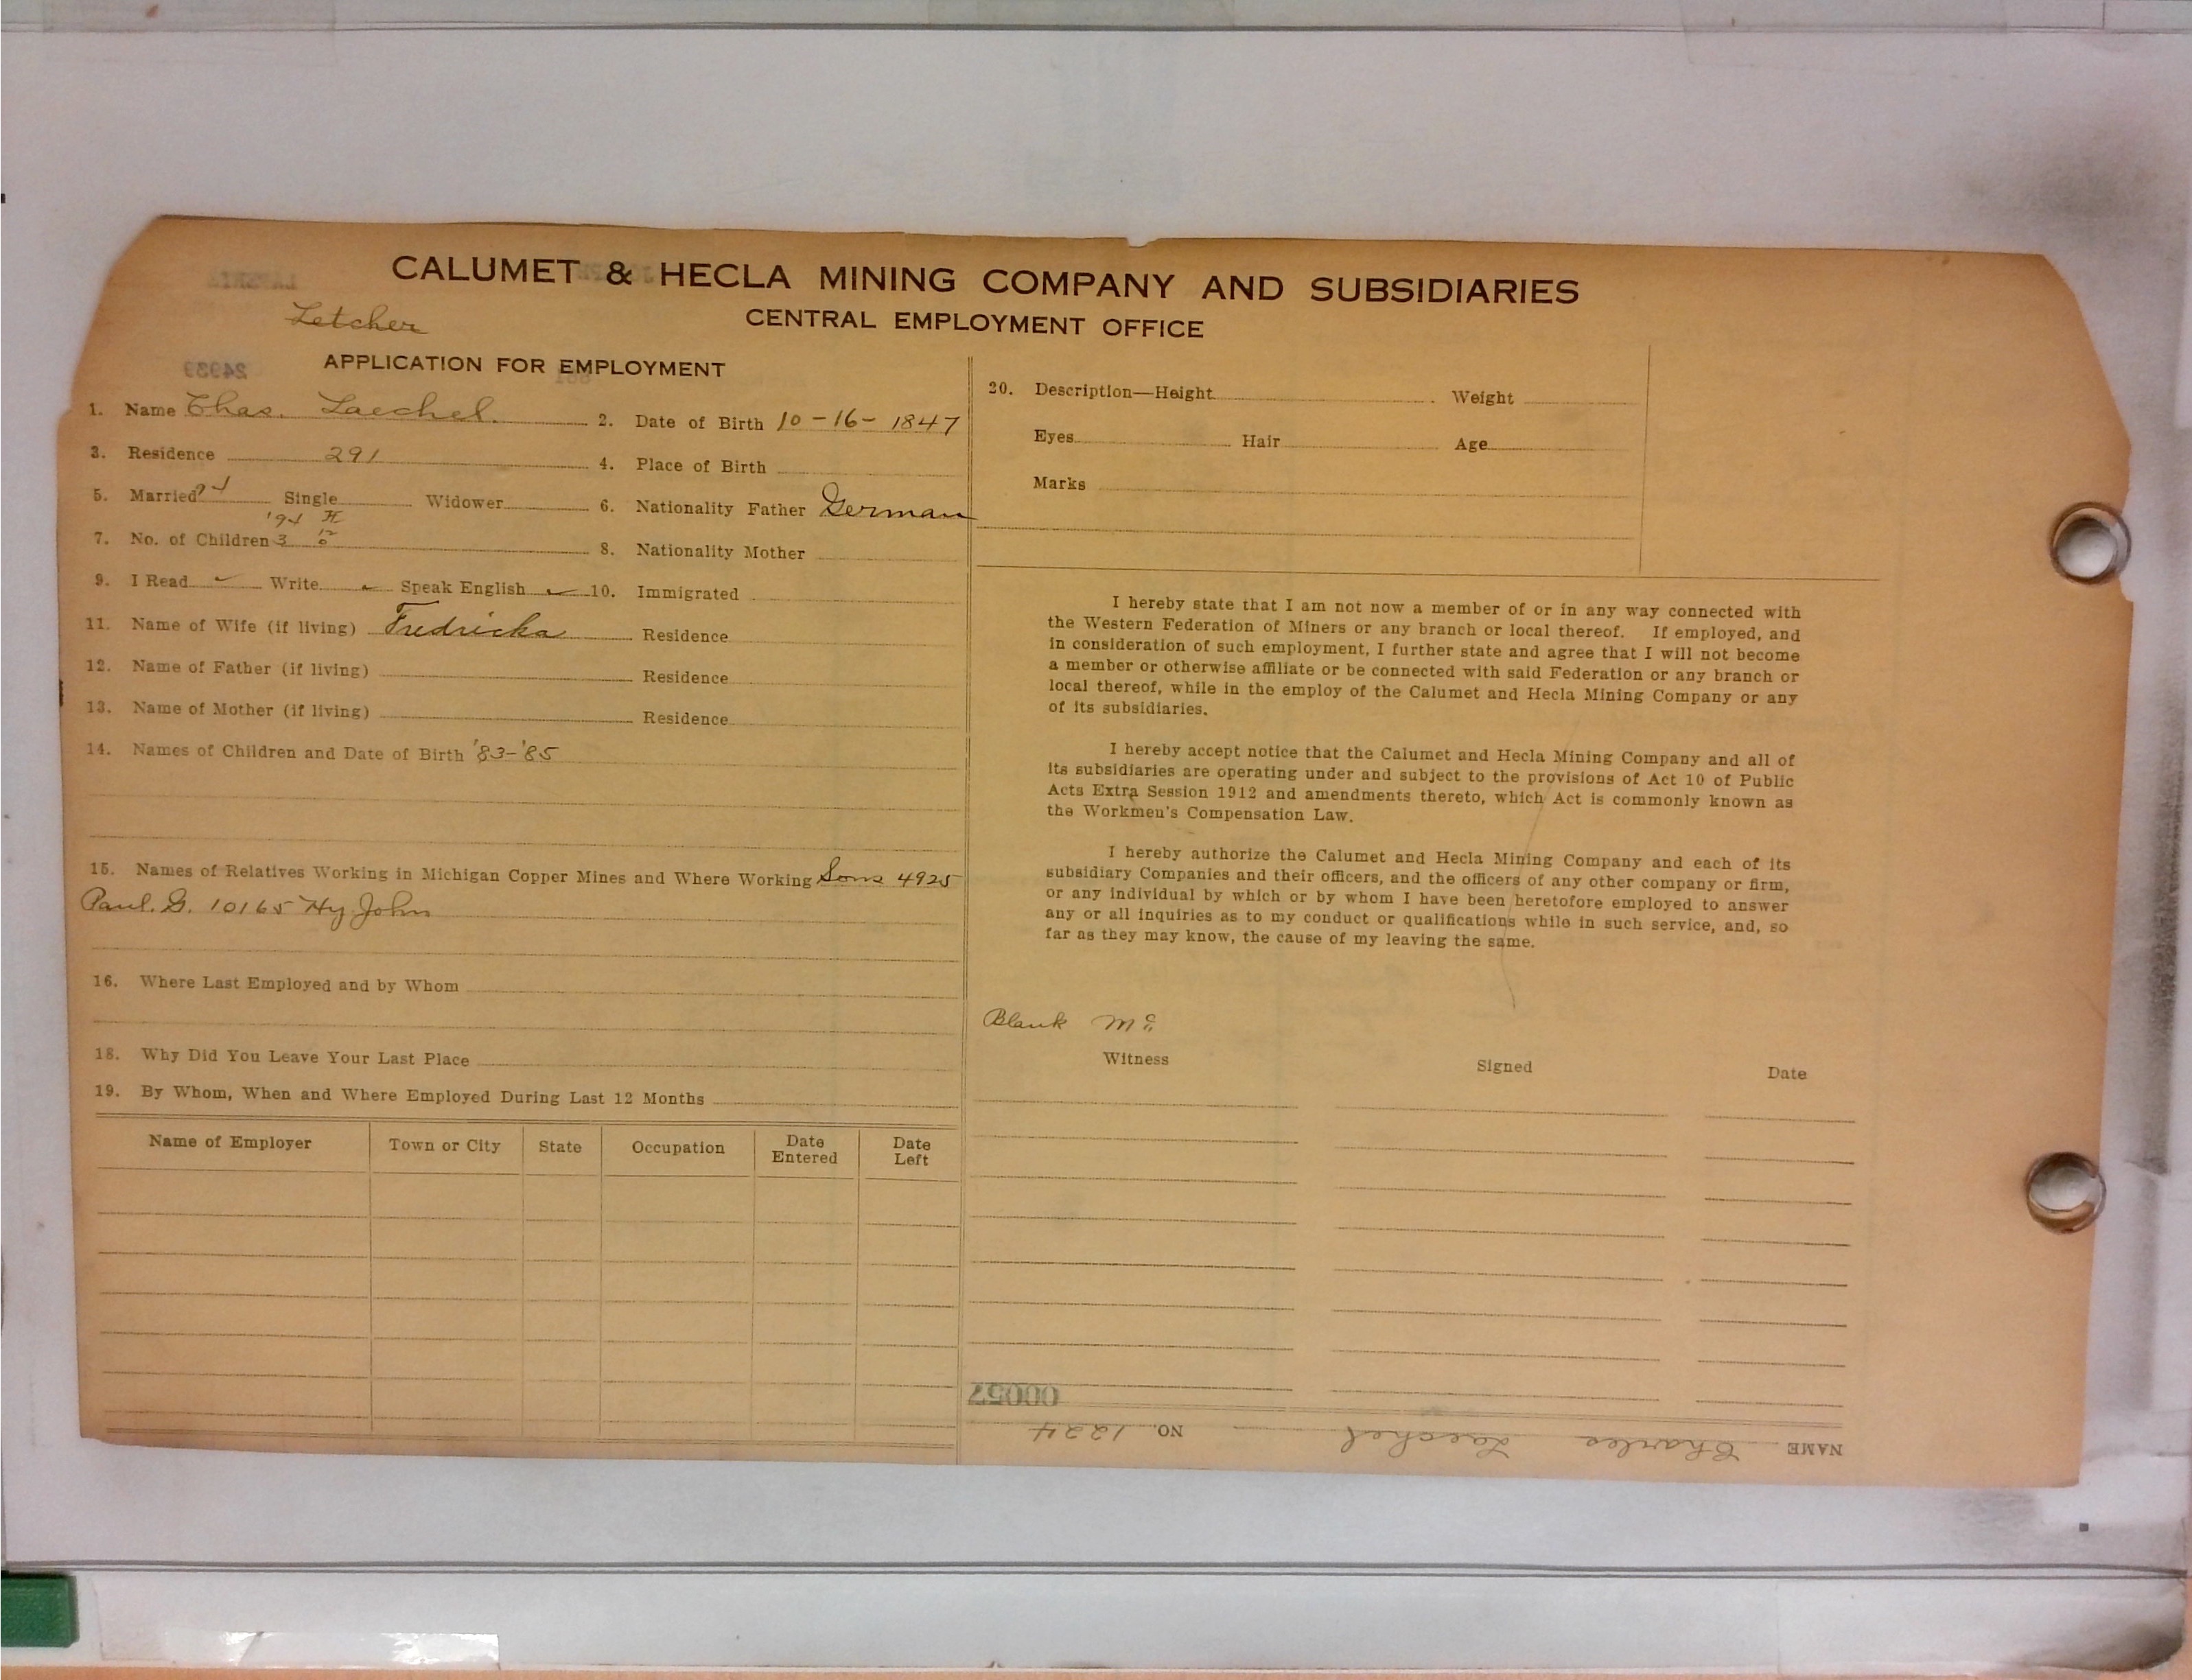 CALUMET & HECLA MINING COMPANY AND SUBSIDIARIES
CENTRAL EMPLOYMENT OFFICE
Letcher
APPLICATION FOR EMPLOYMENT
1. Name Chas. Laechel. 2. Date of Birth 10-16-1847
3. Residence 291 4. Place of Birth
5. Married Single Widower 6. Nationality Father German
'94
7. No. of Children 3 8. Nationality Mother
9. I Read ✓ Write ✓ Speak English ✓ 10. Immigrated
11. Name of Wife (if living) Fredricka Residence
12. Name of Father (if living) Residence
13. Name of Mother (if living) Residence
14. Names of Children and Date of Birth '83-'85
15. Names of Relatives Working in Michigan Copper Mines and Where Working Sons 4925
Paul. G. 10165 Hy John
16. Where Last Employed and by Whom
18. Why Did You Leave Your Last Place
19. By Whom, When and Where Employed During Last 12 Months
Name of Employer Town or City State Occupation Date Entered Date Left
20. Description—Height Weight
Eyes Hair Age
Marks
I hereby state that I am not now a member of or in any way connected with
the Western Federation of Miners or any branch or local thereof. If employed, and
in consideration of such employment, I further state and agree that I will not become
a member or otherwise affiliate or be connected with said Federation or any branch or
local thereof, while in the employ of the Calumet and Hecla Mining Company or any
of its subsidiaries.
I hereby accept notice that the Calumet and Hecla Mining Company and all of
its subsidiaries are operating under and subject to the provisions of Act 10 of Public
Acts Extra Session 1912 and amendments thereto, which Act is commonly known as
the Workmen's Compensation Law.
I hereby authorize the Calumet and Hecla Mining Company and each of its
subsidiary Companies and their officers, and the officers of any other company or firm,
or any individual by which or by whom I have been heretofore employed to answer
any or all inquiries as to my conduct or qualifications while in such service, and, so
far as they may know, the cause of my leaving the same.
Blank Mc
Witness Signed Date
00057
NAME Charles Laechel NO. 1224